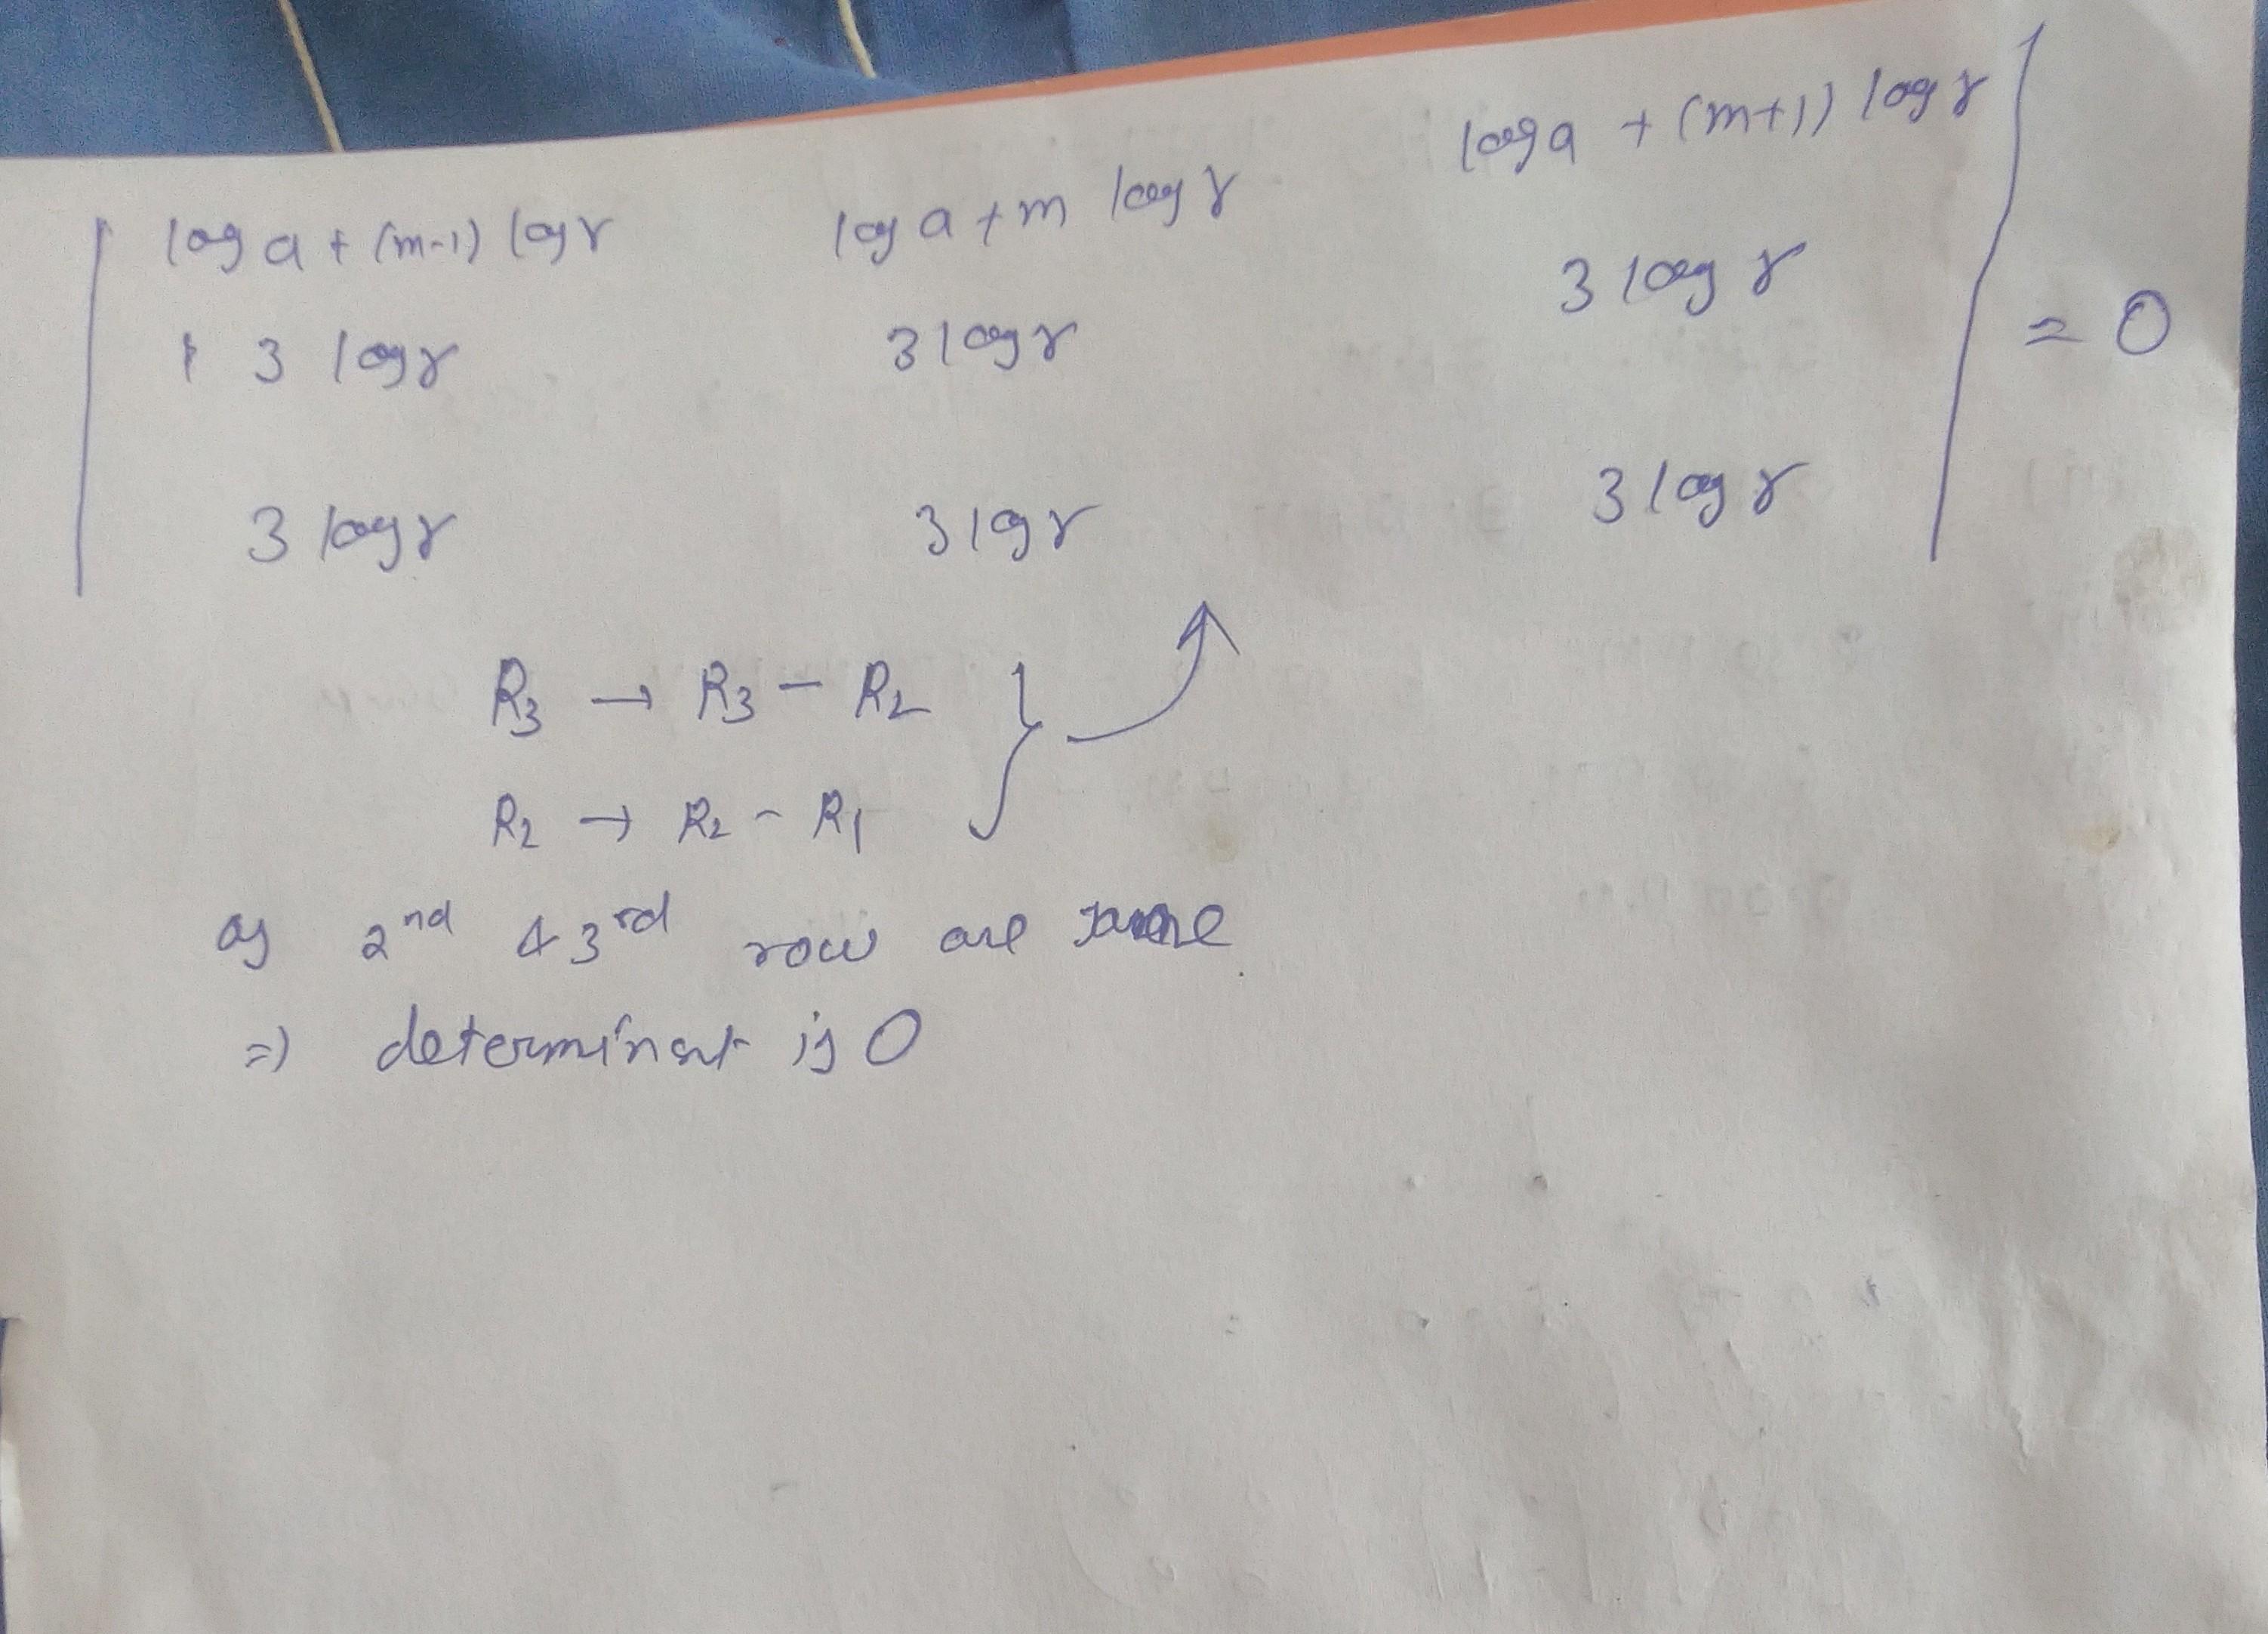 log a + (m-1) log r log a + m log r log a + (m+1) log r
3 log r 3 log r 3 log r = 0
3 log r 3 log r 3 log r
R3 → R3 - R2
R2 → R2 - R1
as 2nd & 3rd row are same
=) determinant is 0